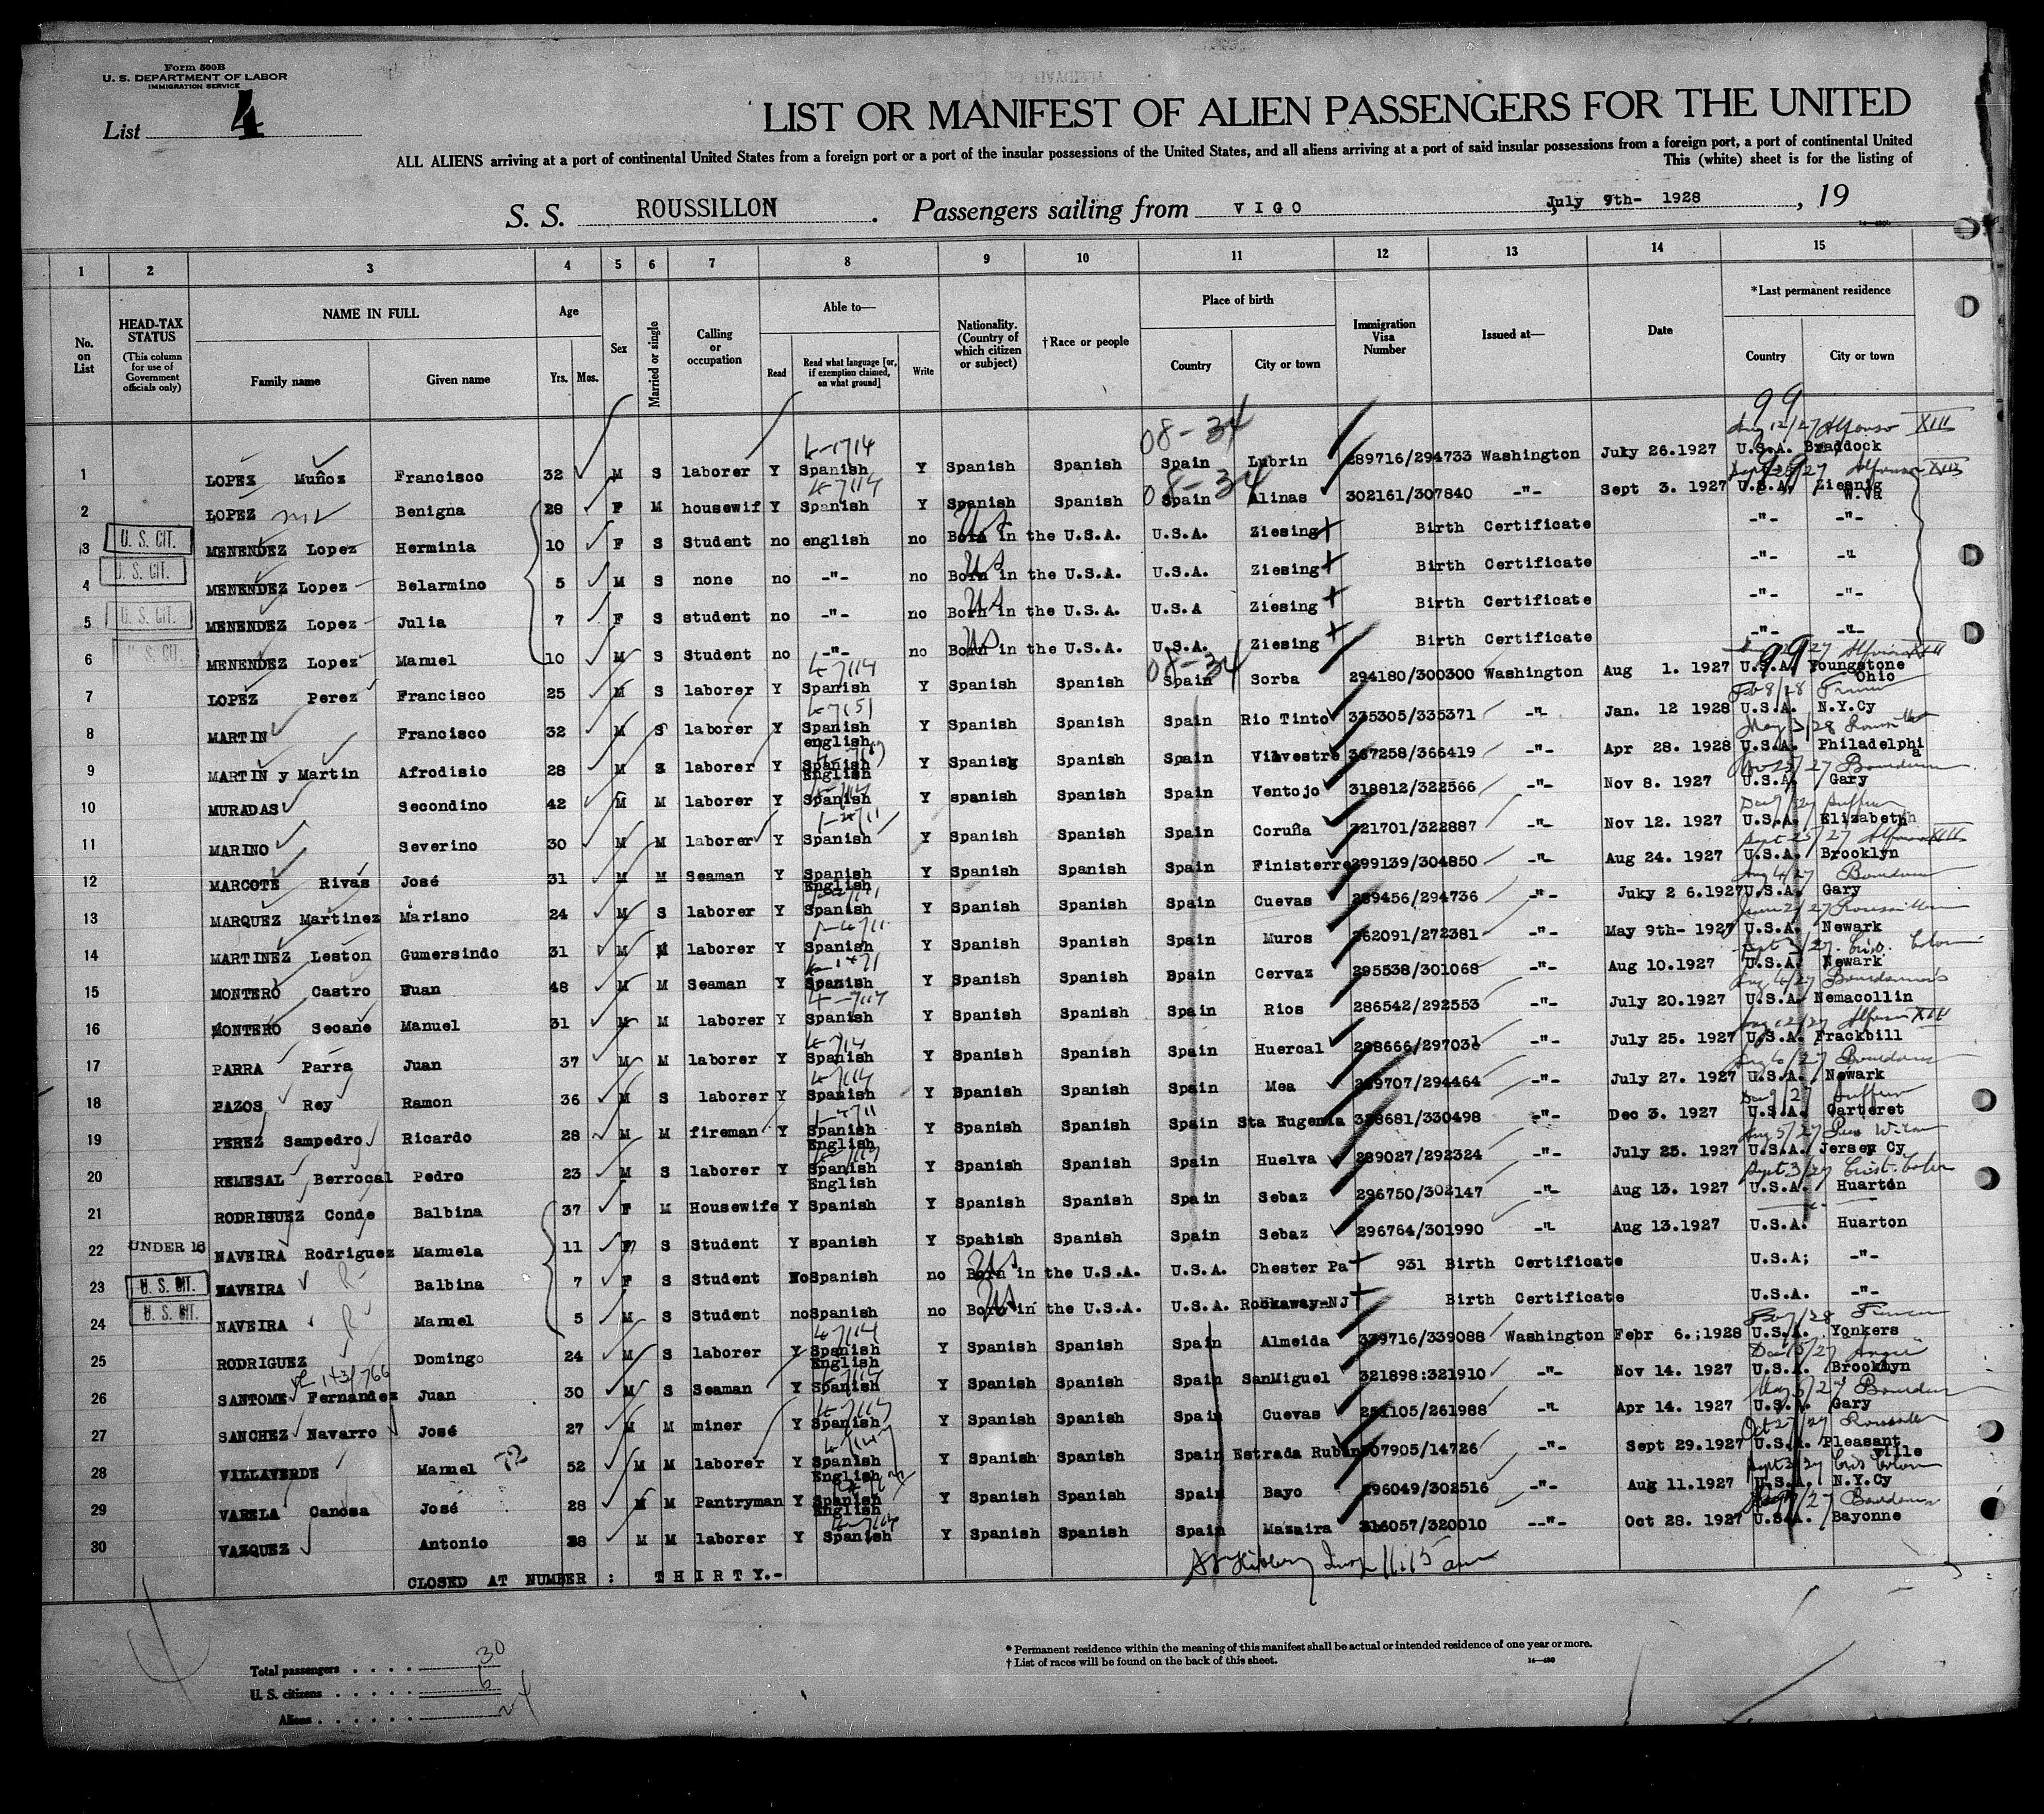 Form 500B
U. S. DEPARTMENT OF LABOR
IMMIGRATION SERVICE
List 4
LIST OR MANIFEST OF ALIEN PASSENGERS FOR THE UNITED
ALL ALIENS arriving at a port of continental United States from a foreign port or a port of the insular possessions of the United States, and all aliens arriving at a port of said insular possessions from a foreign port, a port of continental United
This (white) sheet is for the listing of
S. S. ROUSSILLON . Passengers sailing from VIGO , July 9th- 1928 , 19
1 2 3 4 5 6 7 8 9 10 11 12 13 14 15
No. on List
HEAD-TAX STATUS (This column for use of Government officials only)
NAME IN FULL Family name Given name
Age Yrs. Mos.
Sex
Married or single
Calling or occupation
Able to— Read Read what language [or, if exemption claimed, on what ground] Write
Nationality. (Country of which citizen or subject)
†Race or people
Place of birth Country City or town
Immigration Visa Number
Issued at—
Date
*Last permanent residence Country City or town
1 LOPEZ Muñoz Francisco 32 M S laborer Y Spanish Y Spanish Spanish Spain Lubrin 289716/294733 Washington July 26.1927 U.S.A. Braddock
2 LOPEZ Benigna 28 F M housewif Y Spanish Y Spanish Spanish Spain Alinas 302161/307840 -"- Sept 3. 1927 U.S.A. Ziesnig W.Va
3 U. S. CIT. MENENDEZ Lopez Herminia 10 F S Student no english no Born in the U.S.A. U.S.A. Ziesing Birth Certificate -"- -"-
4 U. S. CIT. MENENDEZ Lopez Belarmino 5 M S none no -"- no Born in the U.S.A. U.S.A. Ziesing Birth Certificate -"- -"-
5 U. S. CIT. MENENDEZ Lopez Julia 7 F S student no -"- no Born in the U.S.A. U.S.A Ziesing Birth Certificate -"- -"-
6 U. S. CIT. MENENDEZ Lopez Manuel 10 M S Student no -"- no Born in the U.S.A. U.S.A. Ziesing Birth Certificate -"- -"-
7 LOPEZ Perez Francisco 25 M S laborer Y Spanish Y Spanish Spanish Spain Sorba 294180/300300 Washington Aug 1. 1927 U.S.A. Youngstone Ohio
8 MARTIN Francisco 32 M S laborer Y Spanish english Y Spanish Spanish Spain Rio Tinto 335305/335371 -"- Jan. 12 1928 U.S.A. N.Y.Cy
9 MARTIN y Martin Afrodisio 28 M S laborer Y Spanish English Y Spanish Spanish Spain Vilvestre 367258/366419 -"- Apr 28. 1928 U.S.A. Philadelphia
10 MURADAS Secondino 42 M M laborer Y Spanish Y spanish Spanish Spain Ventojo 318812/322566 -"- Nov 8. 1927 U.S.A. Gary
11 MARINO Severino 30 M M laborer Y Spanish Y Spanish Spanish Spain Coruña 321701/322887 -"- Nov 12. 1927 U.S.A. Elizabeth
12 MARCOTE Rivas José 31 M M Seaman Y Spanish English Y Spanish Spanish Spain Finisterre 299139/304850 -"- Aug 24. 1927 U.S.A. Brooklyn
13 MARQUEZ Martinez Mariano 24 M S laborer Y Spanish Y Spanish Spanish Spain Cuevas 289456/294736 -"- Juky 2 6.1927 U.S.A. Gary
14 MARTINEZ Leston Gumersindo 31 M M laborer Y Spanish Y Spanish Spanish Spain Muros 262091/272381 -"- May 9th- 1927 U.S.A. Newark
15 MONTERO Castro Juan 48 M M Seaman Y Spanish Y Spanish Spanish Spain Cervaz 295538/301068 -"- Aug 10.1927 U.S.A. Newark
16 MONTERO Seoane Manuel 31 M M laborer Y Spanish Y Spanish Spanish Spain Rios 286542/292553 -"- July 20.1927 U.S.A. Nemacollin
17 PARRA Parra Juan 37 M M laborer Y Spanish Y Spanish Spanish Spain Huercal 288666/297031 -"- July 25. 1927 U.S.A. Frackbill
18 PAZOS Rey Ramon 36 M S laborer Y Spanish Y Spanish Spanish Spain Mea 289707/294464 -"- July 27. 1927 U.S.A. Newark
19 PEREZ Sampedro Ricardo 28 M M fireman Y Spanish English Y Spanish Spanish Spain Sta Eugenia 328681/330498 -"- Dec 3. 1927 U.S.A. Carteret
20 REMESAL Berrocal Pedro 23 M S laborer Y Spanish English Y Spanish Spanish Spain Huelva 289027/292324 -"- July 25. 1927 U.S.A. Jersey Cy
21 RODRIGUEZ Conde Balbina 37 F M Housewife Y Spanish Y Spanish Spanish Spain Sebaz 296750/302147 -"- Aug 13. 1927 U.S.A. Huarton
22 UNDER 16 NAVEIRA Rodriguez Manuela 11 F S Student Y spanish Y Spanish Spanish Spain Sebaz 296764/301990 -"- Aug 13.1927 U.S.A. Huarton
23 U. S. CIT. NAVEIRA Balbina 7 F S Student No Spanish no Born in the U.S.A. U.S.A. Chester Pa 931 Birth Certificate U.S.A; -"-
24 U. S. CIT. NAVEIRA Manuel 5 M S Student no Spanish no Born in the U.S.A. U.S.A. Rockaway-NJ Birth Certificate U.S.A. -"-
25 RODRIGUEZ Domingo 24 M S laborer Y Spanish English Y Spanish Spanish Spain Almeida 339716/339088 Washington Febr 6.;1928 U.S.A. Yonkers
26 SANTOME Fernandez Juan 30 M S Seaman Y Spanish Y Spanish Spanish Spain SanMiguel 321898:321910 -"- Nov 14. 1927 U.S.A. Brooklyn
27 SANCHEZ Navarro José 27 M M miner Y Spanish Y Spanish Spanish Spain Cuevas 251105/261988 -"- Apr 14. 1927 U.S.A. Gary
28 VILLAVERDE Manuel 52 M M laborer Y Spanish English Y Spanish Spanish Spain Estrada Rubin 307905/14726 -"- Sept 29.1927 U.S.A. Pleasant ville
29 VARELA Canosa José 28 M M Pantryman Y Spanish English Y Spanish Spanish Spain Bayo 296049/302516 -"- Aug 11.1927 U.S.A. N.Y.Cy
30 VAZQUEZ Antonio 38 M M laborer Y Spanish Y Spanish Spanish Spain Mazaira 316057/320010 --"- Oct 28. 1927 U.S.A. Bayonne
CLOSED AT NUMBER : THIRTY.-
* Permanent residence within the meaning of this manifest shall be actual or intended residence of one year or more.
† List of races will be found on the back of this sheet.
Total passengers . . . . 30
U. S. citizens . . . . . 6
Aliens . . . . . . 24